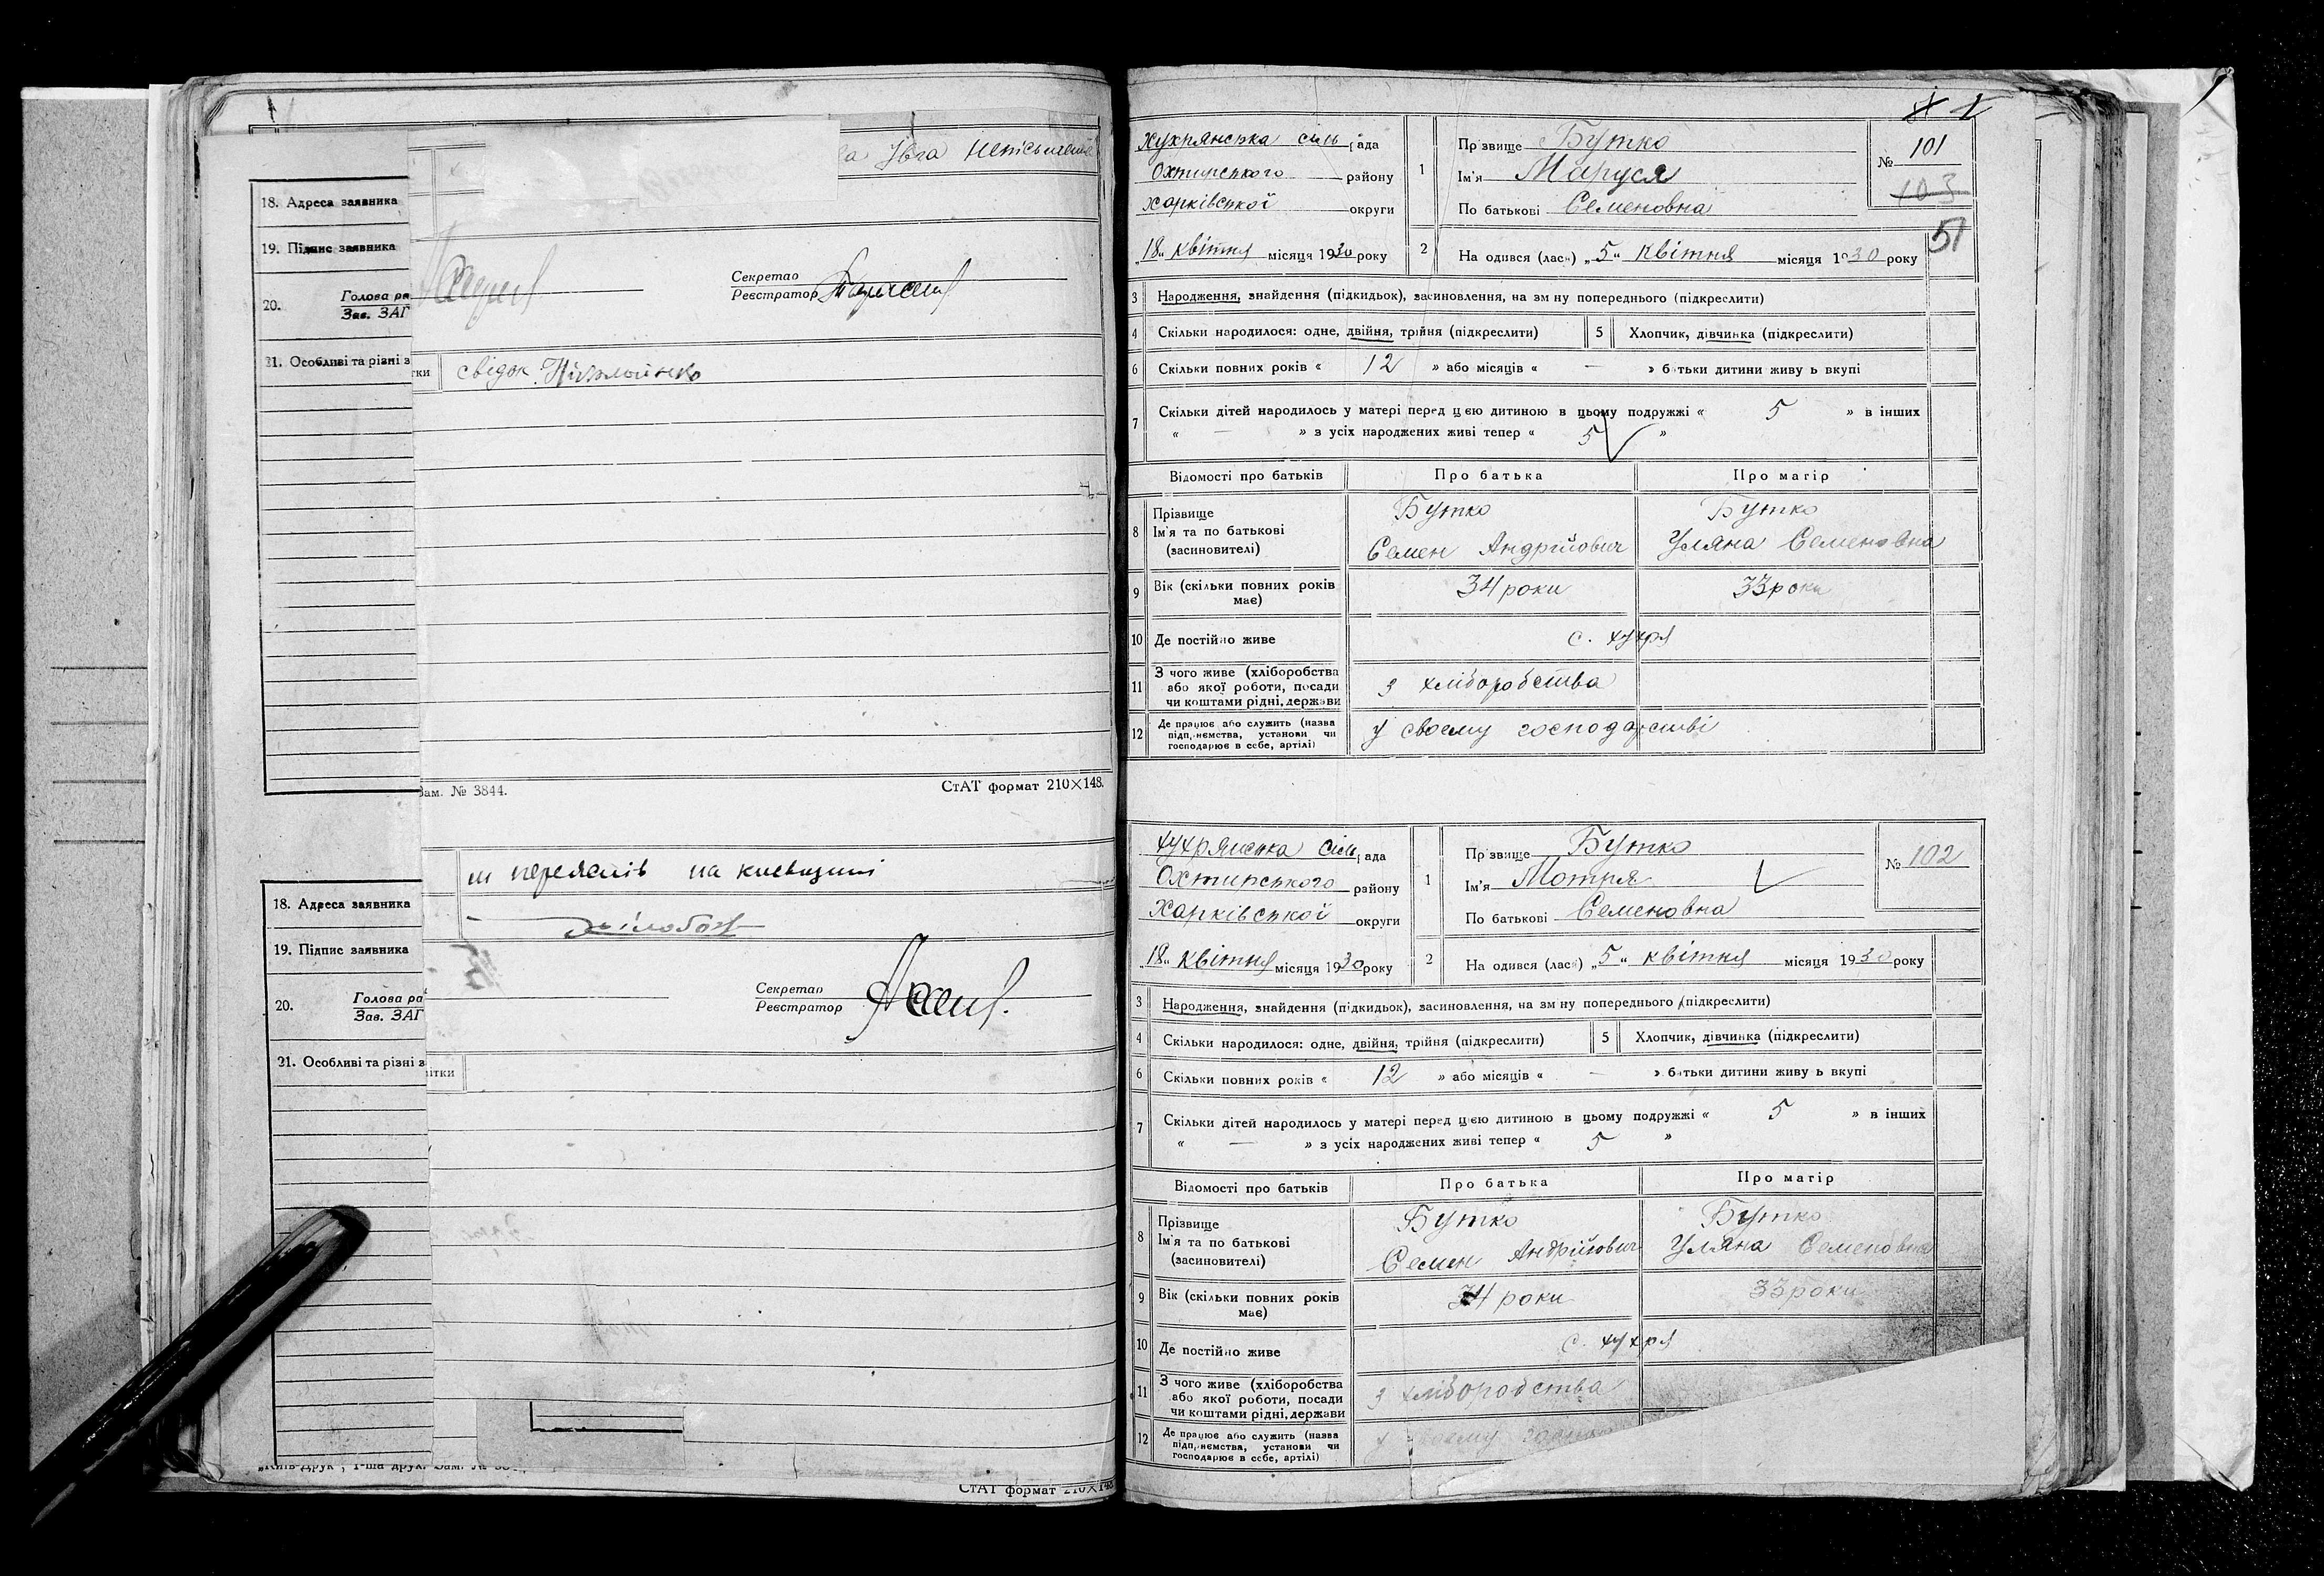 Увга неписьменна
18. Адреса заявника
19. Підпис заявника
Секретар
Реєстратор
20. Голова ра
Зав. ЗАГ
21. Особливі та різні з
тки
свідок
Зам. № 3844.
СтАТ формат 210×148.
м переяслів на київщині
18. Адреса заявника
19. Підпис заявника
Секретар
Реєстратор
20. Голова ра
Зав. ЗАГ
21. Особливі та різні з
ітки
СтАТ формат 210×148
Хухрянська сіль рада
Охтирського району
Харківської округи
„18" квітня місяця 1930 року
1 Прізвище Бутко
Ім'я Маруся
По батькові Семеновна
№ 101
103
51
2 Народився (лася) „5" квітня місяця 1930 року
3 Народження, знайдення (підкидьок), засиновлення, на зміну попереднього (підкреслити)
4 Скільки народилося: одне, двійня, трійня (підкреслити) 5 Хлопчик, дівчинка (підкреслити)
6 Скільки повних років « 12 » або місяців « — » батьки дитини живуть вкупі
7 Скільки дітей народилось у матері перед цією дитиною в цьому подружжі « 5 » в інших
« — » з усіх народжених живі тепер « 5 »
Відомості про батьків Про батька Про матір
8 Прізвище Бутко Бутко
Ім'я та по батькові
(засиновителі) Семен Андрійович Уляна Семеновна
9 Вік (скільки повних років має) 34 роки 33 роки
10 Де постійно живе с. Хухря
11 З чого живе (хліборобства
або якої роботи, посади
чи коштами рідні, держави
з хліборобства
12 Де працює або служить (назва
підприємства, установи чи
господарює в себе, артілі)
у своему господарстві
Хухрянська сіль рада
Охтирського району
Харківської округи
„18" квітня місяця 1930 року
1 Прізвище Бутко
Ім'я Мотря
По батькові Семеновна
№ 102
2 Народився (лася) „5" квітня місяця 1930 року
3 Народження, знайдення (підкидьок), засиновлення, на зміну попереднього (підкреслити)
4 Скільки народилося: одне, двійня, трійня (підкреслити) 5 Хлопчик, дівчинка (підкреслити)
6 Скільки повних років « 12 » або місяців « — » батьки дитини живуть вкупі
7 Скільки дітей народилось у матері перед цією дитиною в цьому подружжі « 5 » в інших
« — » з усіх народжених живі тепер « 5 »
Відомості про батьків Про батька Про матір
8 Прізвище Бутко Бутко
Ім'я та по батькові
(засиновителі) Семен Андрійович Уляна Семеновна
9 Вік (скільки повних років має) 34 роки 33 роки
10 Де постійно живе с. Хухря
11 З чого живе (хліборобства
або якої роботи, посади
чи коштами рідні, держави
з хліборобства
12 Де працює або служить (назва
підприємства, установи чи
господарює в себе, артілі)
у своему